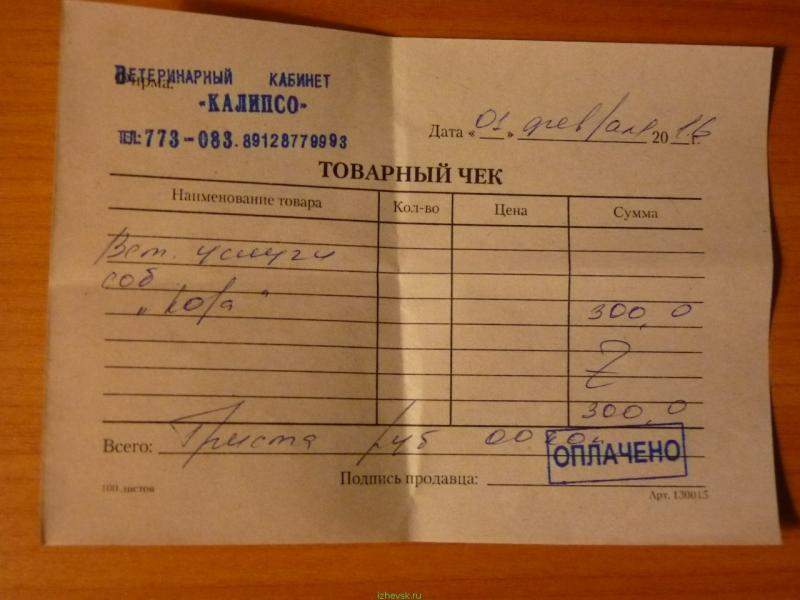 Фирма:
ВЕТЕРИНАРНЫЙ КАБИНЕТ
"КАЛИПСО"
ТЕЛ: 773-083. 89128779993
Дата «01» февраля 2016 г.
ТОВАРНЫЙ ЧЕК
Наименование товара Кол-во Цена Сумма
Вет. услуги
соб
"Кора" 300,0
300,0
Всего: Триста руб 00 коп.
ОПЛАЧЕНО
Подпись продавца:
100 листов Арт. 130015
izhevsk.ru